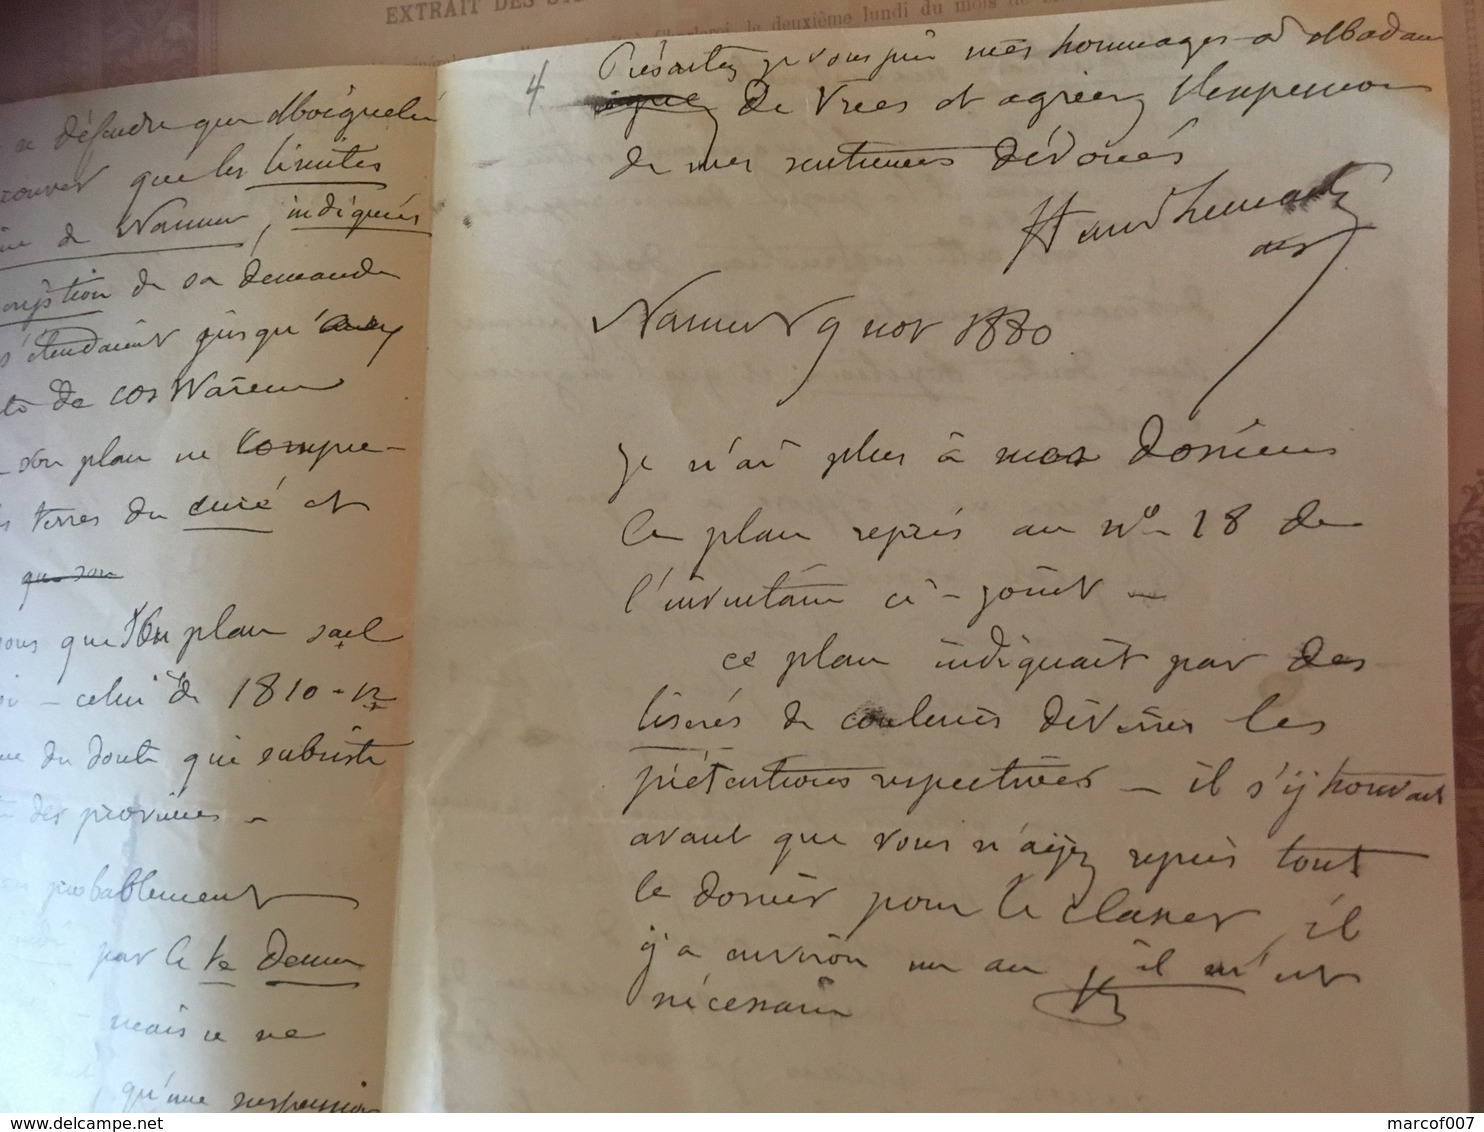 EXTRAIT DES
le deuxième lundi du mois de
se défendre que
trouver que les limites
de Namur, indiqués
de sa demande
s'étendaient jusqu'
de cos Warem
plan ne compre-
terres du curé et
que son
que son plan sael
- celui de 1810 - 12
du doute qui subsiste
des provinces -
probablement
par le
mais ce ne
qu'une suspension
4
Présentez je vous prie mes hommages à Madam
De Vrees et agréez l'expression
de mes sentiments dévoués
Namur 9 nov 1880
Je n'ai plus à mes dossiers
le plan repris au n° 18 de
l'inventaire ci-joint -
ce plan indiquait par des
liserés de couleurs diverses les
prétentions respectives - il s'y trouvait
avant que vous n'ayez repris tout
le dossier pour le classer, il
y a environ un an, il m'est
nécessaire
marcof007